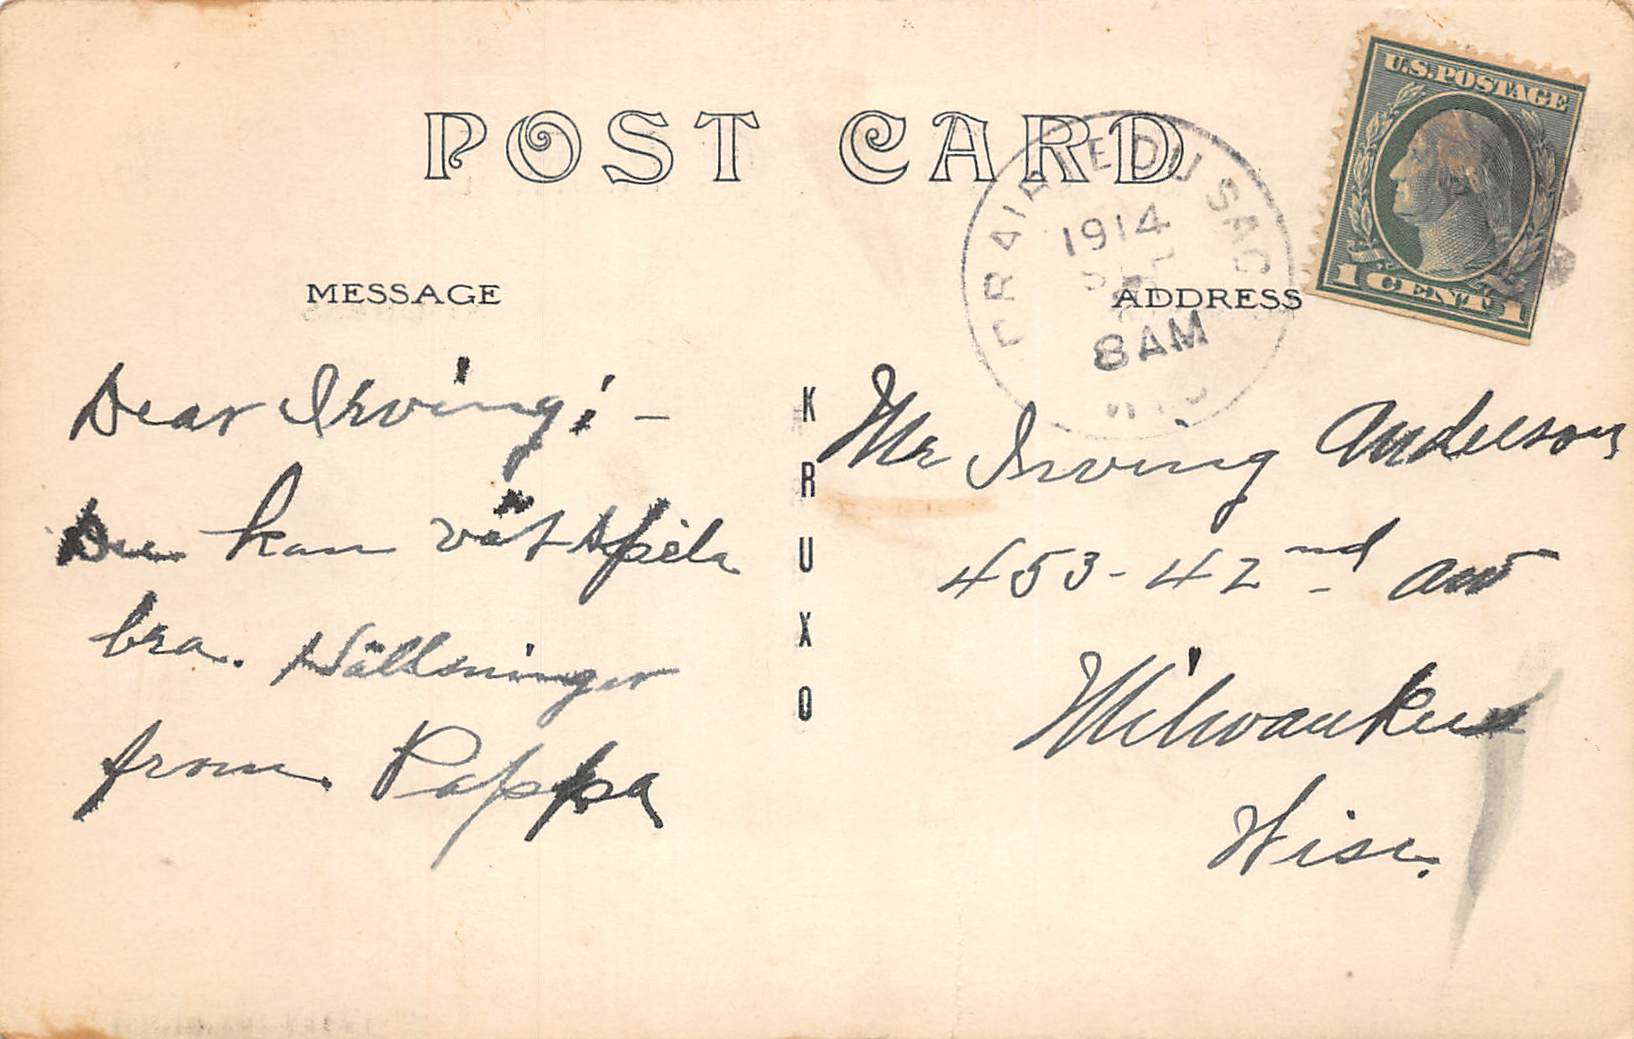 POST CARD
U.S. POSTAGE
1 CENT 1
PRAIRIE DU SAC
1914
8 AM
WIS
MESSAGE
ADDRESS
Dear Irving; -
Du kan vist spela
bra. Hällsningar
from Pappa
KRUXO
Mr Irving Anderson
453-42nd Av
Milwaukee
Wisc.